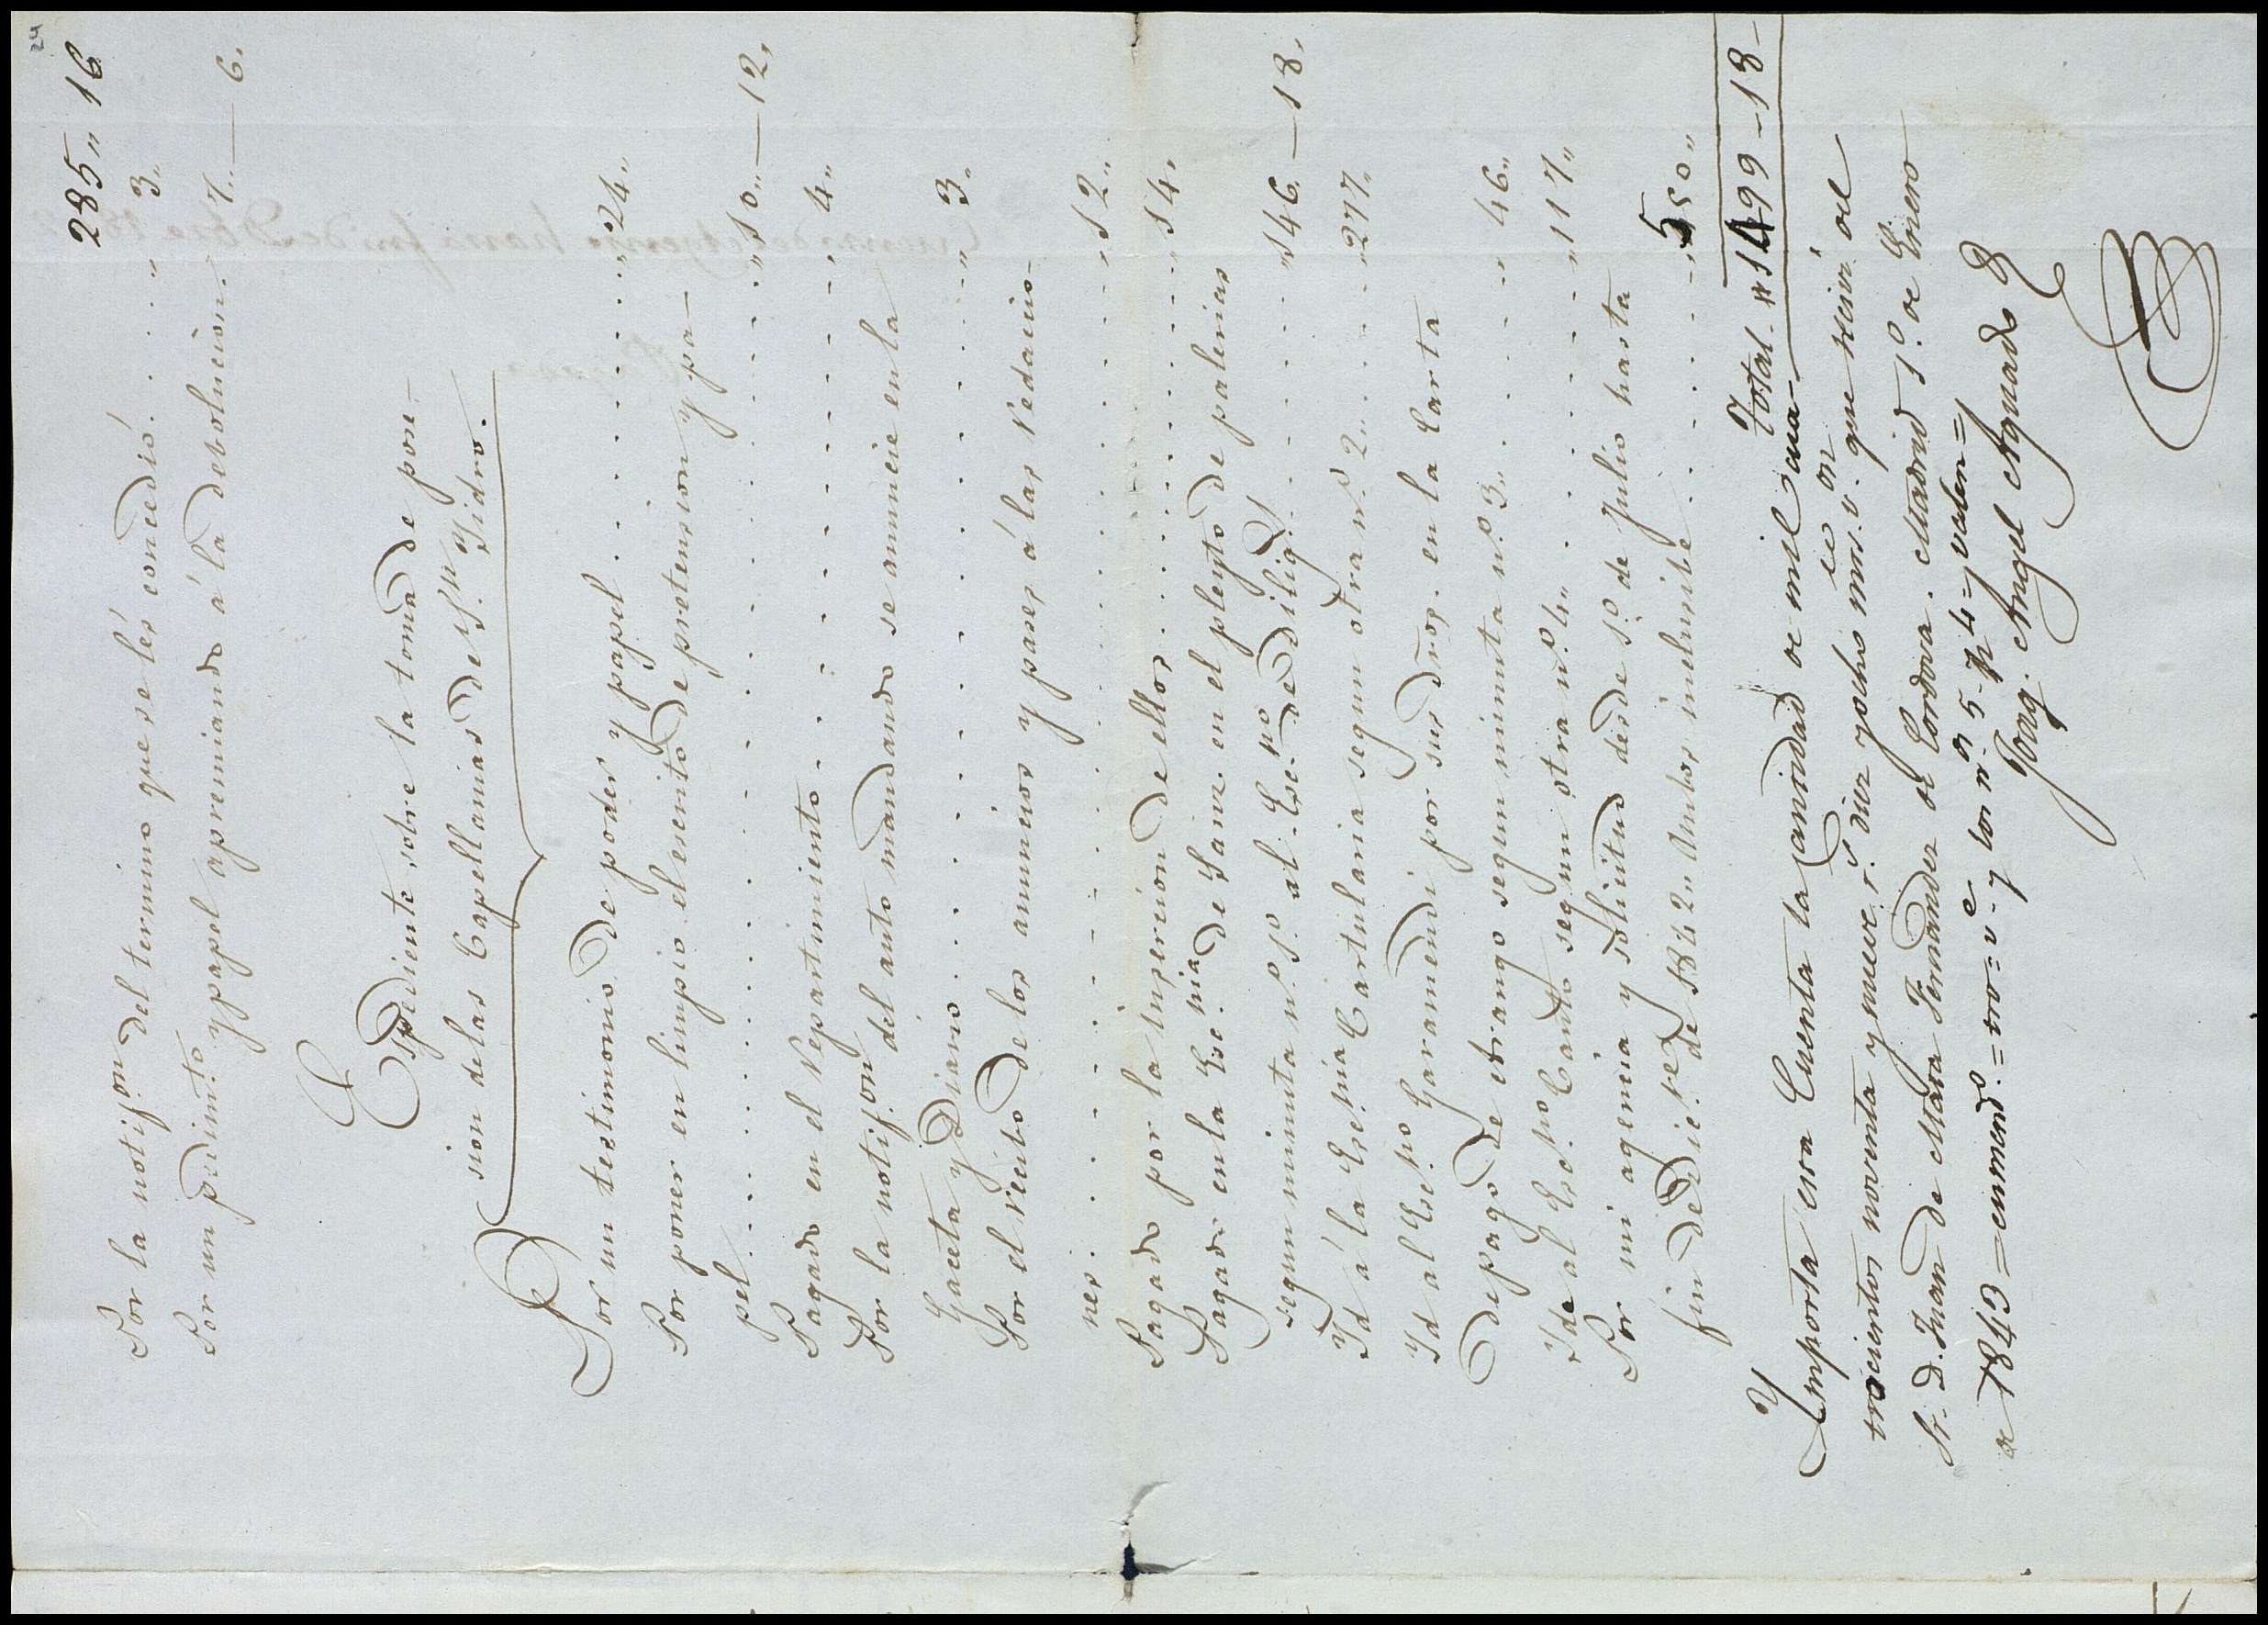 24
285,, 16
Por la notif.on del termino que se les concedió . . . ,, 3,,
Por un pedim.to y papel apremiando á la devolucion. 7,,— 6,,
Espediente sobre la toma de pose-
sion de las Capellanias de S.n Ysidro.
Por un testimonio de poder y papel . . . . . . ,,24,,
Por poner en limpio el escrito de pretension y pa-
pel . . . . . . . . . . . . ,,10,,—12,,
Pagado en el repartimiento . . . . . . . . ,, 4,,
Por la notif.on del auto mandando se anuncie en la
Gaceta y Diario . . . . . . . . . . ,, 3,,
Por el recibo de los anuncios y pases á las redaccio-
nes . . . . . . . . . . . . ,,12,,
Pagado por la insercion de ellos . . . . . . . ,,14,,
Pagado en la Esc.nia de Sanz en el pleyto de palencias
segun minuta n.º 1.º al Esc.no de dilig.s . . . . ,,146,,—18,,
Yd á la Esc.nia Cartularia segun otra n.º 2,, . . . . ,,277,,
Yd al Esc.no Garamendi por sus dros. en la Carta
de pago de Arango segun minuta n.º 3,, . . . . ,, 46,,
Yd al Esc.no Cando segun otra n.º 4,, . . . . . ,,117,,
Por mi agencia y solicitud desde 1.º de Julio hasta
fin de Dic.re de 1842,, Ambos inclusibe . . . . . ,,550,,
Total. ,,1499—18—
Ymporta esta Cuenta la cantidad de mil cua-
trocientos noventa y nueve r.s diez y ocho mrs. v.on que recivi del
Sr. D. Juan de Mata Fernandez de Cordova. Madrid 1.º de Enero
de 1843 = enmend.º = tro = v.e = y los n.os 5 - y 4 = valen =
Joaq. Angel Aguado